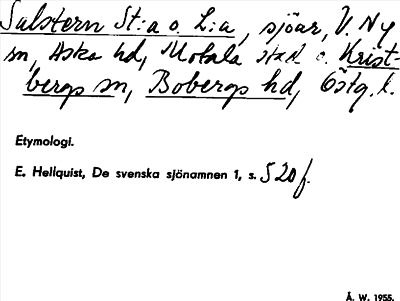 Salstern St:a o. L:a, sjöar, V. Ny
sn, Aska hd, Motala stad o. Krist-
bergs sn, Bobergs hd, Östg. l.
Etymologi.
E. Hellquist, De svenska sjönamnen 1, s. 520 f.
Å. W. 1955.